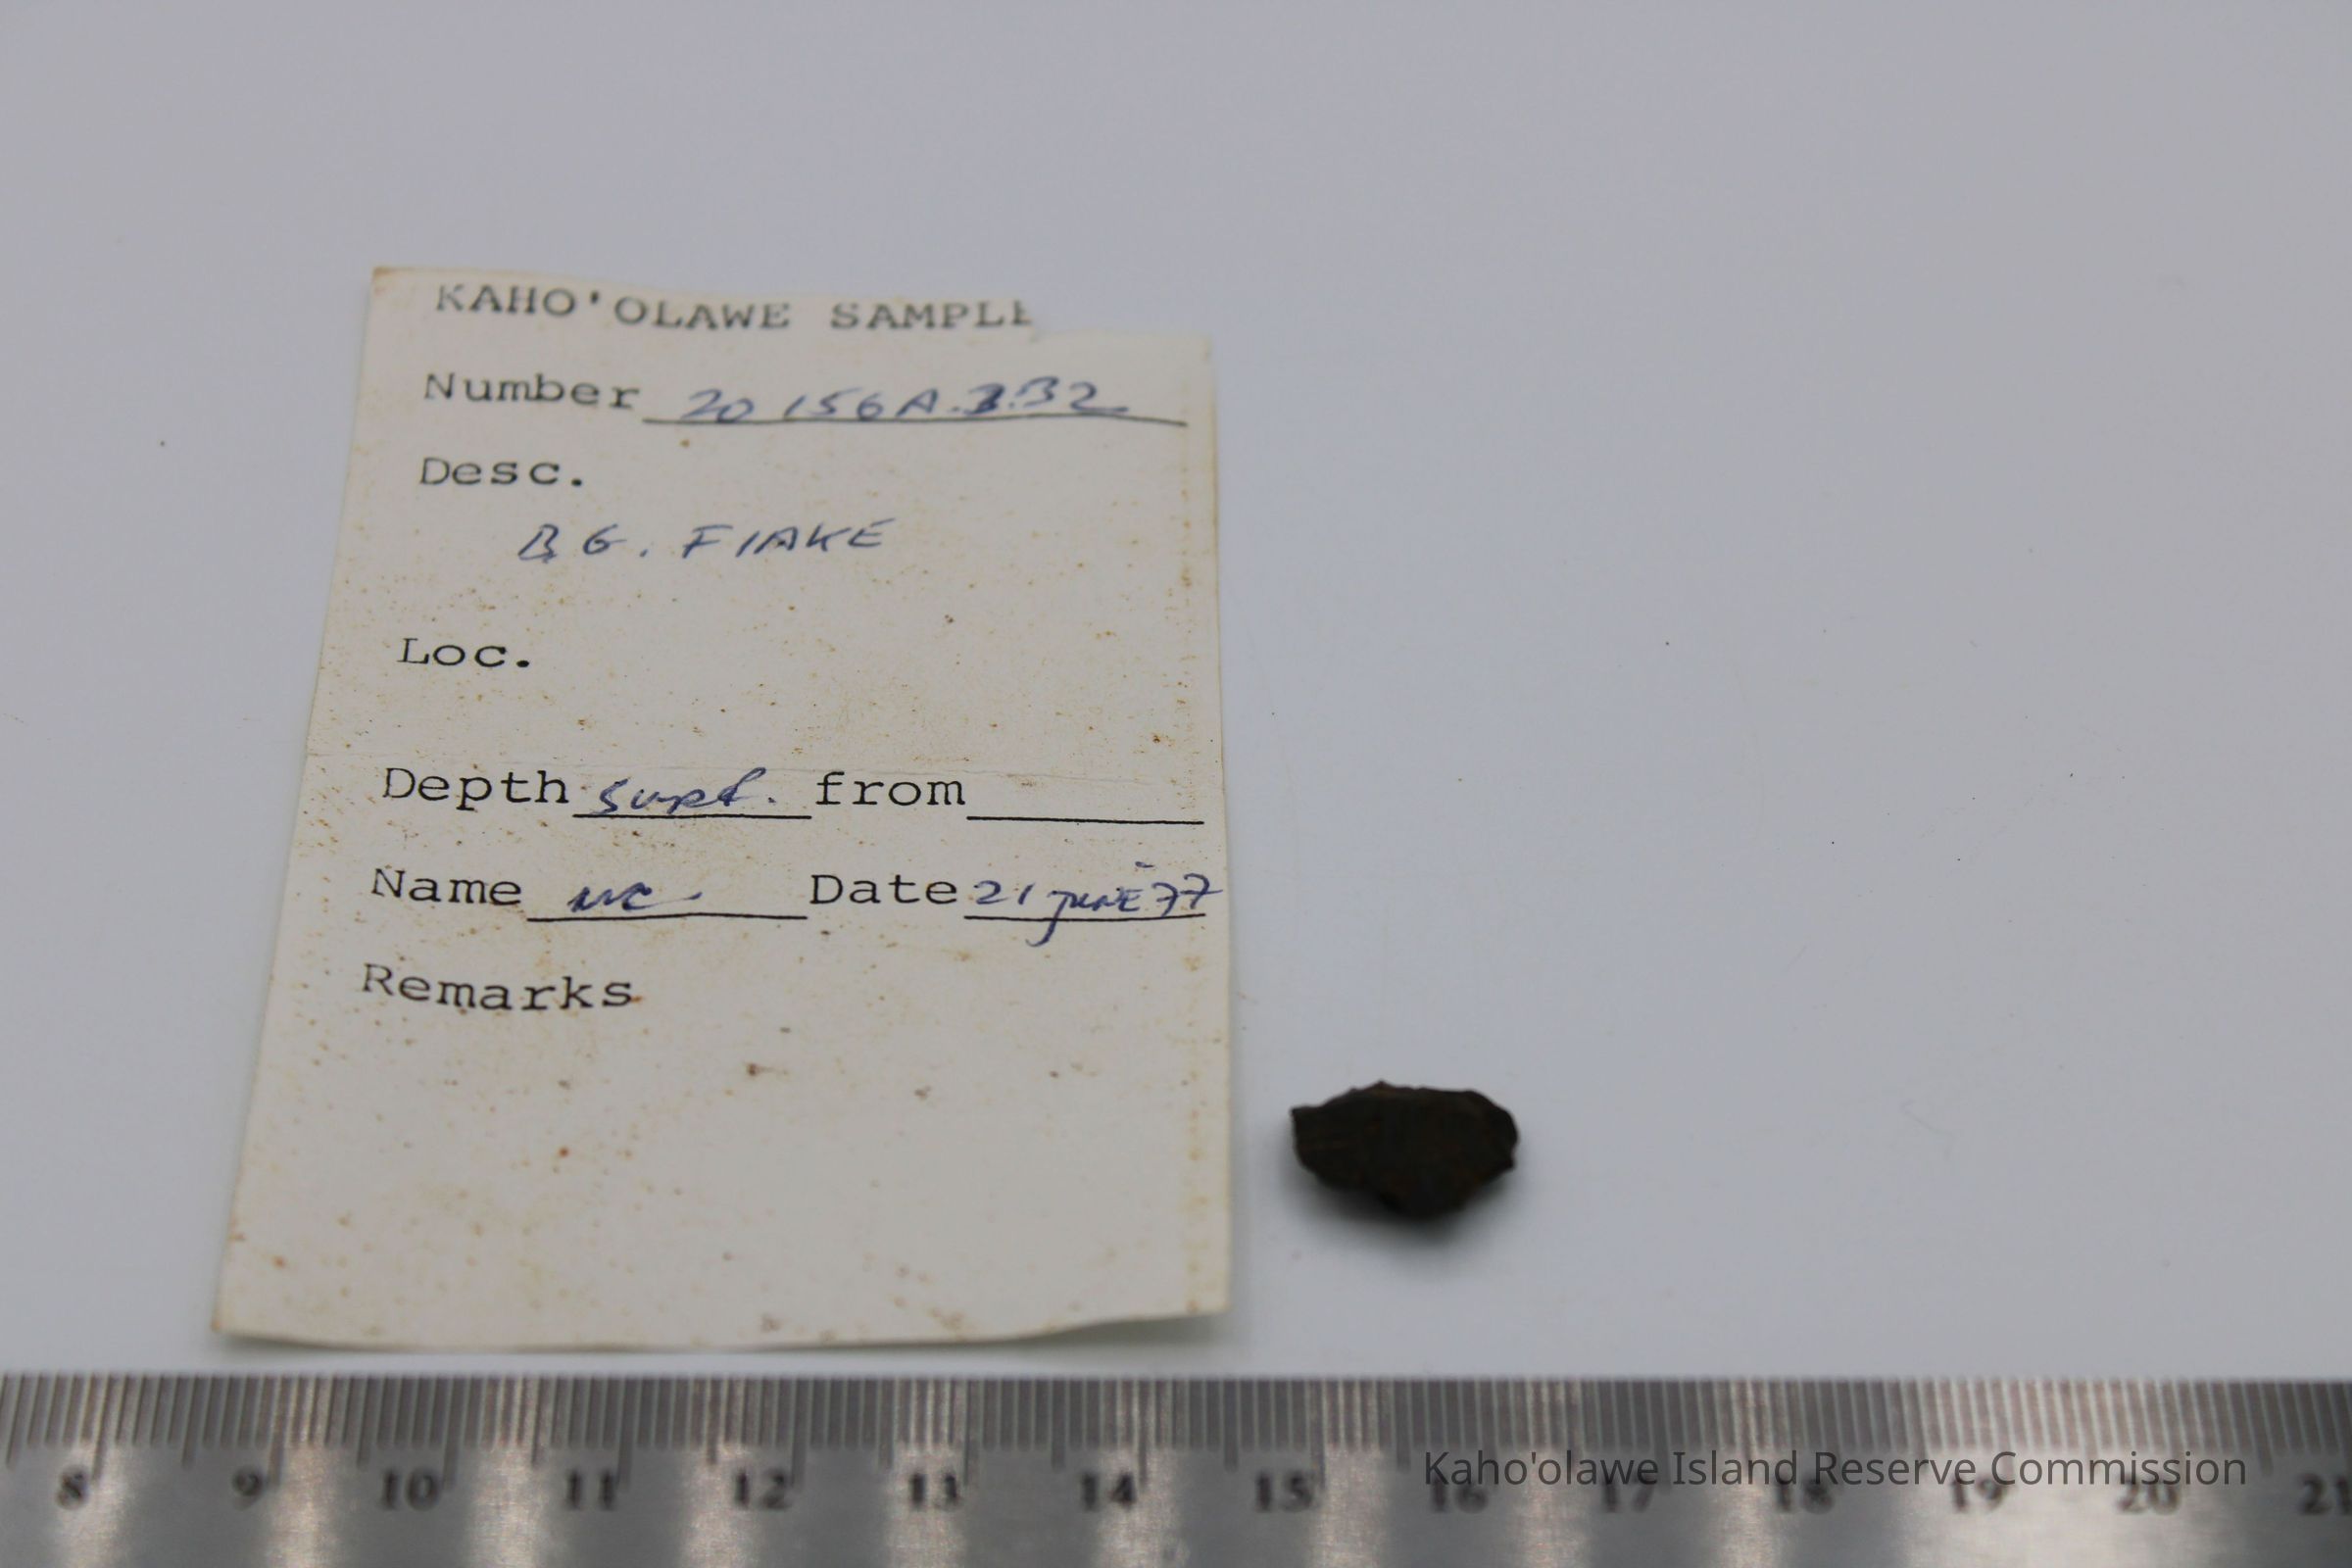 KAHO'OLAWE SAMPLE
Number 20 156A.3.32
Desc.
BG. FLAKE
Loc.
Depth surf. from
Name Date 21 JUNE 77
Remarks
8 9 10 11 12 13 14 15 16 17 18 19 20 21
Kaho'olawe Island Reserve Commission